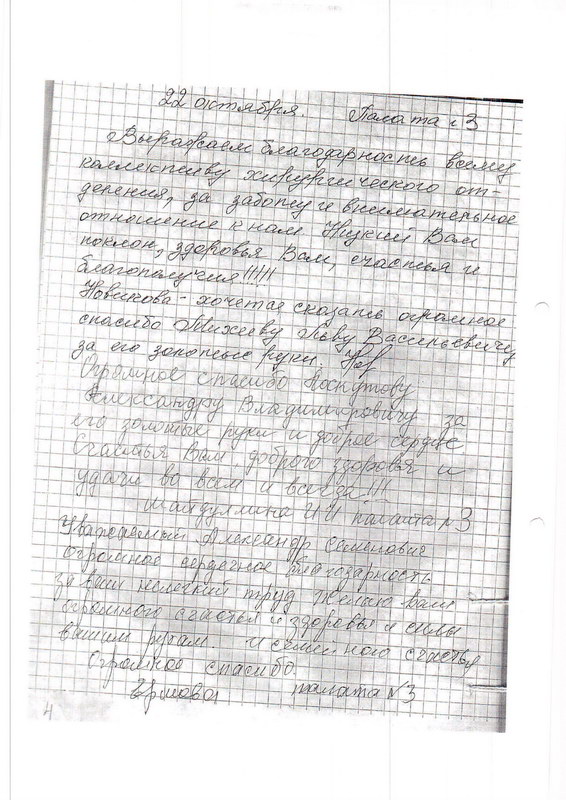 22 октября. Палата №3
Выражаем благодарность всему
коллективу хирургического от-
деления, за заботу и внимательное
отношение к нам Низкий Вам
поклон, здоровья Вам, счастья и
благополучия!!!!!
Новикова - хочется сказать огромное
спасибо Михееву Льву Васильевичу
за его золотые руки. Нов
Огромное спасибо Лоскутову
Александру Владимировичу за
его золотые руки и доброе сердце
Счастья Вам, доброго здоровья и
удачи во всём и всегда!!!
Шайдуллина И И палата №3
Уважаемый Александр Семенович
огромное сердечное благодарность
за ваш нелегкий труд Желаю вам
огромного счастья и здоровья и силы
вашим рукам. и семейного счастья
Огромное спасибо.
палата №3
4